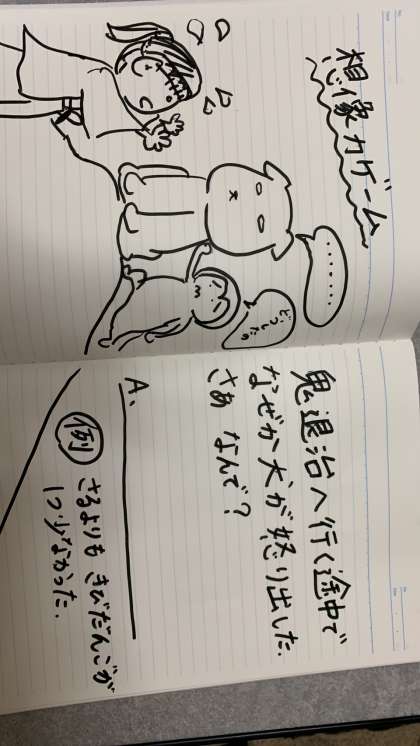 想像力ゲーム
・・・・・・
どうしたの
鬼退治へ行く途中で
なぜか犬が怒り出した.
さあ なんで?
A.
例 さるよりも きびだんごが
1つ少なかった.